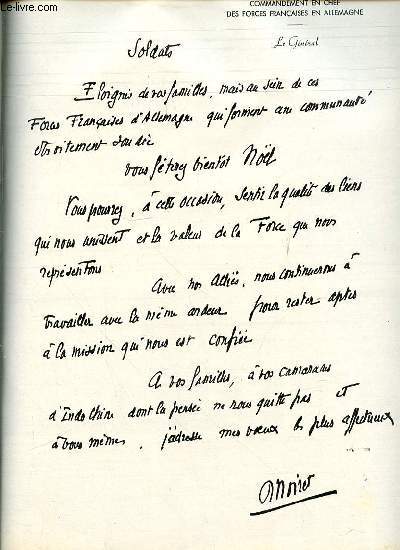 www.Le-livre.com
COMMANDEMENT EN CHEF
DES FORCES FRANÇAISES EN ALLEMAGNE
Le Général
Soldats
Eloignés de vos familles, mais au sein de ces
Forces Françaises d'Allemagne qui forment une communauté
étroitement soudée
vous fêterez bientôt Noël
Vous pourrez, à cette occasion, sentir la qualité des liens
qui nous unissent et la valeur de la Force que nous
représentons
Avec nos Alliés, nous continuerons à
travailler avec la même ardeur pour rester aptes
à la mission qui nous est confiée
A vos familles, à vos camarades
d'Indochine dont la pensée ne nous quitte pas et
à vous mêmes, j'adresse mes vœux les plus affectueux
Noiret